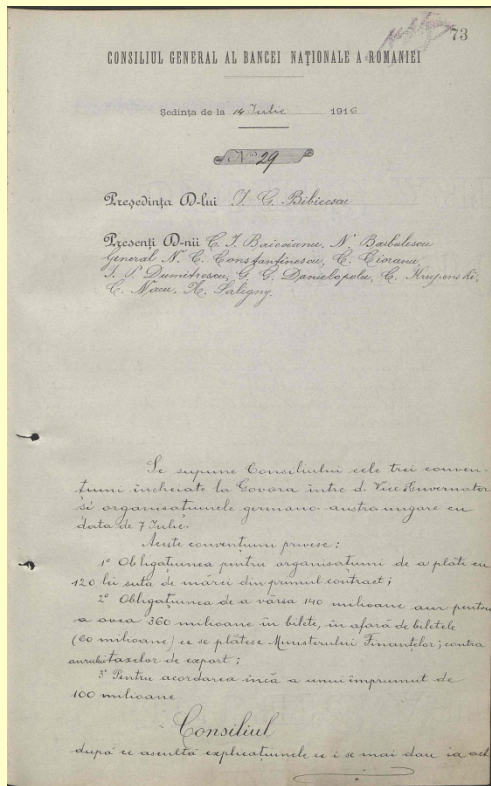 73
CONSILIUL GENERAL AL BANCEI NAȚIONALE A ROMANIEI
Ședința de la 14 Iulie 1916
No 29
Președinția D-lui I. G. Bibicescu
Presenți D-nii C. I. Baicoianu, N. Barbulescu
General N. C. Constantinescu, C. Cioranu,
I. P. Dumitrescu, G. G. Danielopolu, C. Krupenski,
C. Nacu, A. Saligny.
Se supune Consiliului cele trei conven-
țiuni încheiate la Govora între d. Vice Guvernator
și organisațiunele germano-austro ungare cu
data de 7 Iulie.
Aceste convențiuni privesc:
1º Obligațiunea pentru organisațiuni de a plăti cu
120 lei suta de mărci din primul contract;
2º Obligațiunea de a vărsa 140 milioane aur pentru
a avea 360 milioane în bilete, în afară de biletele
(60 milioane) ce se plătesc Ministerului Finanțelor; contra
aurului taxelor de export;
3º Pentru acordarea încă a unui împrumut de
100 milioane
Consiliul
după ce ascultă explicațiunele ce i se mai dau ia act